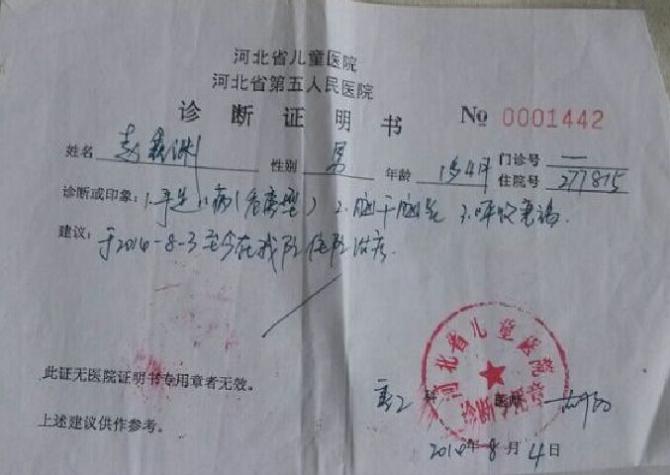 河北省儿童医院
河北省第五人民医院
诊断证明书 № 0001442
姓名 赵 渊 性别 男 年龄 1岁4月 门诊号 — 住院号 277815
诊断或印象:1.手足口病(危重型) 2.脑干脑炎 3.呼吸衰竭.
建议: 于2014-8-3至今在我院住院治疗.
此证无医院证明书专用章者无效。
上述建议供作参考。
河北省儿童医院
医师
2014年8月4日